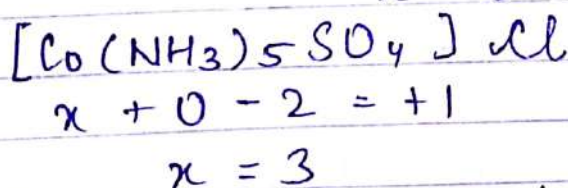 [Co(NH3)5SO4].Cl
x + 0 - 2 = +1
x = 3